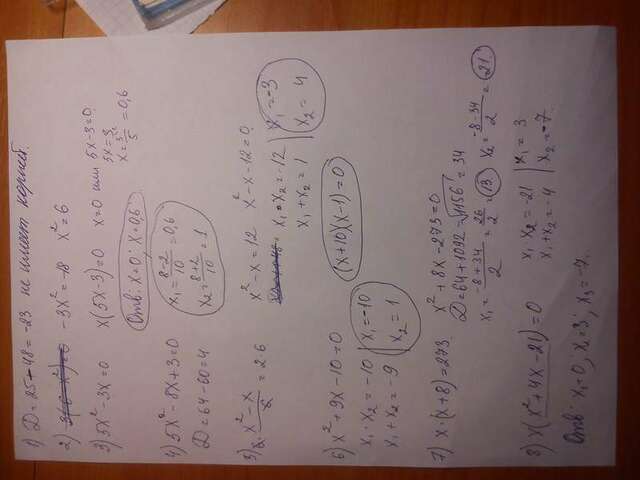 1) D = 25 - 48 = -23 не имеет корней.
2) -3x² = -18 x² = 6
3) 5x² - 3x = 0 x(5x-3) = 0 x = 0 или 5x-3=0
5x = 3
x = 3/5 = 0,6
Отв: x=0; x=0,6
4) 5x² - 8x + 3 = 0
D = 64 - 60 = 4
x₁ = (8-2)/10 = 0,6
x₂ = (8+2)/10 = 1
x² - x = 12 x² - x - 12 = 0
x₁ · x₂ = -12 | x₁ = -3
x₁ + x₂ = 1 | x₂ = 4
6) x² + 9x - 10 = 0
x₁ · x₂ = -10 | x₁ = -10
x₁ + x₂ = -9 | x₂ = 1
(x+10)(x-1) = 0
7) x · (x+8) = 273
x² + 8x - 273 = 0
D = 64 + 1092 = √1156 = 34
x₁ = (-8+34)/2 = 26/2 = 13 x₂ = (-8-34)/2 = 21
8) x(x² + 4x - 21) = 0
x₁ x₂ = -21 | x₁ = 3
x₁ + x₂ = -4 | x₂ = -7
Отв: x₁ = 0; x₂ = 3; x₃ = -7.